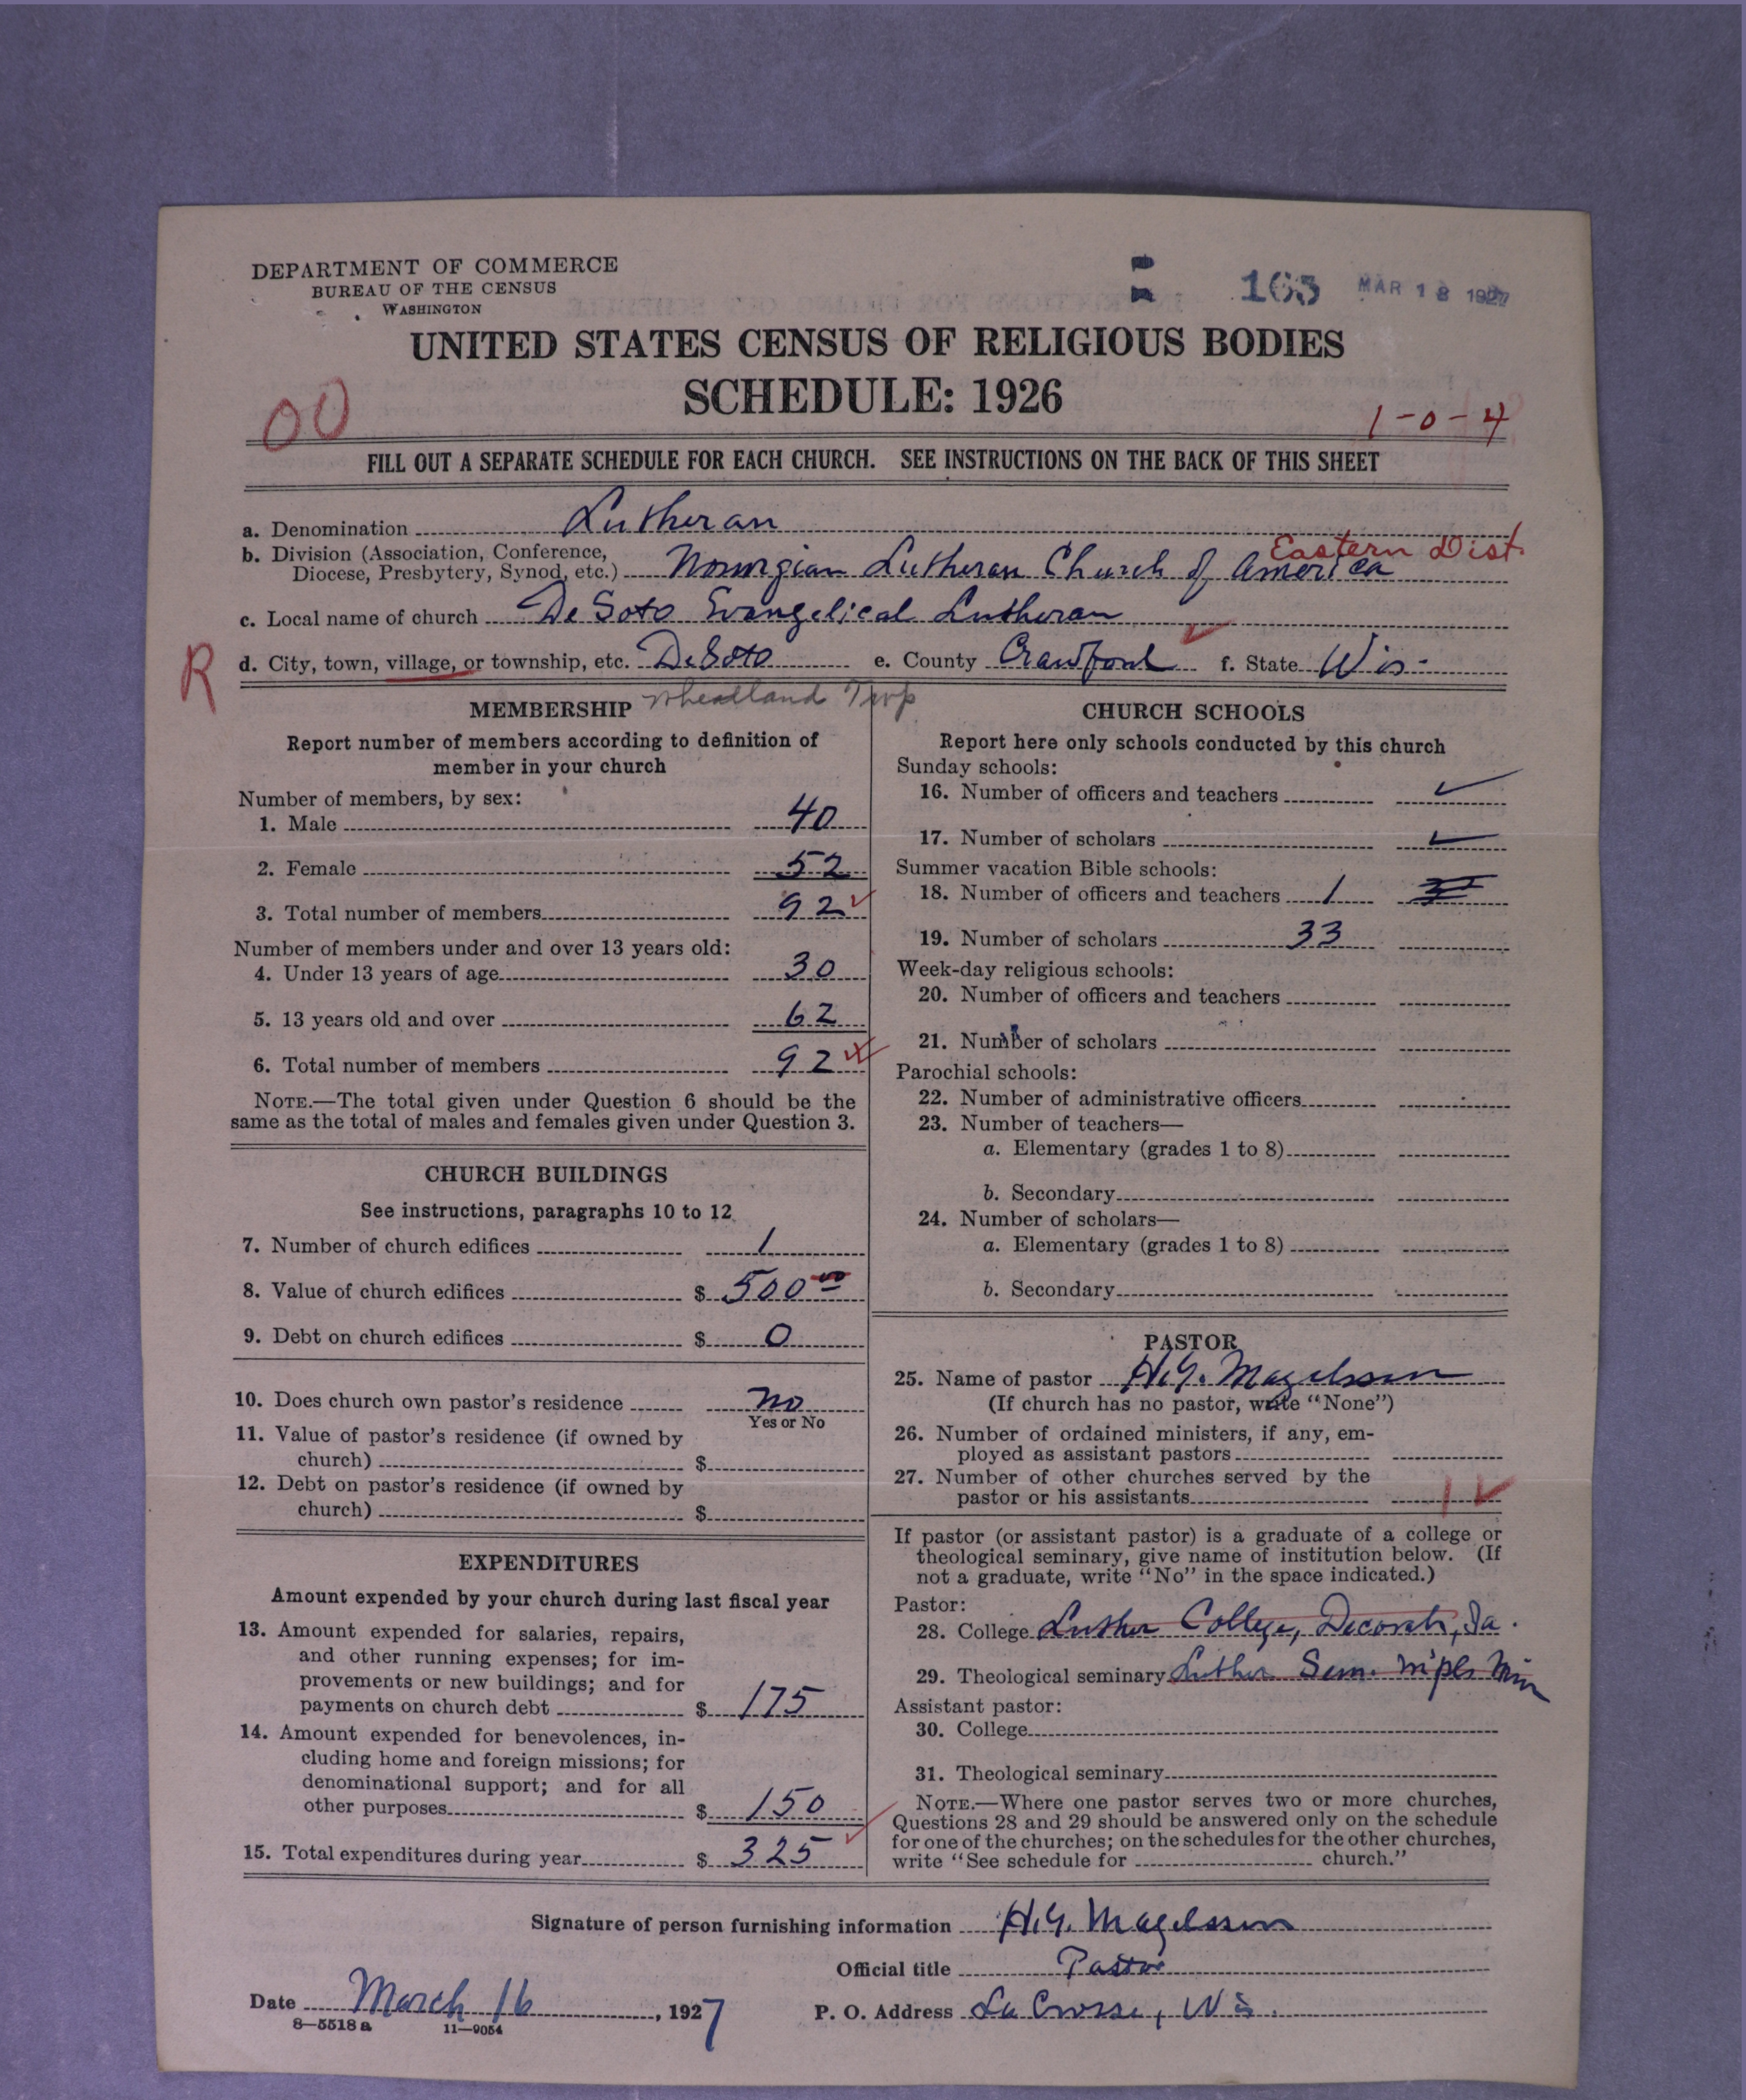 DEPARTMENT OF COMMERCE
BUREAU OF THE CENSUS
WASHINGTON
165 MAR 18 1927
UNITED STATES CENSUS OF RELIGIOUS BODIES
SCHEDULE: 1926
00
1-0-4
FILL OUT A SEPARATE SCHEDULE FOR EACH CHURCH. SEE INSTRUCTIONS ON THE BACK OF THIS SHEET
a. Denomination Lutheran
Eastern Dist.
b. Division (Association, Conference,
Diocese, Presbytery, Synod, etc.) Norwegian Lutheran Church of America
c. Local name of church De Soto Evangelical Lutheran
R
d. City, town, village, or township, etc. De Soto e. County Crawford ✓ f. State Wis.
Wheatland Twp
MEMBERSHIP
Report number of members according to definition of
member in your church
Number of members, by sex:
1. Male 40
2. Female 52
3. Total number of members 92 ✓
Number of members under and over 13 years old:
4. Under 13 years of age 30
5. 13 years old and over 62
6. Total number of members 92
NOTE.—The total given under Question 6 should be the
same as the total of males and females given under Question 3.
CHURCH BUILDINGS
See instructions, paragraphs 10 to 12
7. Number of church edifices 1
8. Value of church edifices $ 500 00
9. Debt on church edifices $ 0
10. Does church own pastor's residence No
Yes or No
11. Value of pastor's residence (if owned by
church) $
12. Debt on pastor's residence (if owned by
church) $
EXPENDITURES
Amount expended by your church during last fiscal year
13. Amount expended for salaries, repairs,
and other running expenses; for im-
provements or new buildings; and for
payments on church debt $ 175
14. Amount expended for benevolences, in-
cluding home and foreign missions; for
denominational support; and for all
other purposes $ 150
15. Total expenditures during year $ 325 ✓
CHURCH SCHOOLS
Report here only schools conducted by this church
Sunday schools:
16. Number of officers and teachers ✓
17. Number of scholars ✓
Summer vacation Bible schools:
18. Number of officers and teachers 1
19. Number of scholars 33
Week-day religious schools:
20. Number of officers and teachers
21. Number of scholars
Parochial schools:
22. Number of administrative officers
23. Number of teachers—
a. Elementary (grades 1 to 8)
b. Secondary
24. Number of scholars—
a. Elementary (grades 1 to 8)
b. Secondary
PASTOR
25. Name of pastor H.G. Magelssen
(If church has no pastor, write "None")
26. Number of ordained ministers, if any, em-
ployed as assistant pastors
27. Number of other churches served by the
pastor or his assistants 1 ✓
If pastor (or assistant pastor) is a graduate of a college or
theological seminary, give name of institution below. (If
not a graduate, write "No" in the space indicated.)
Pastor:
28. College Luther College, Decorah, Ia.
29. Theological seminary Luther Sem. Mpls Min
Assistant pastor:
30. College
31. Theological seminary
NOTE.—Where one pastor serves two or more churches,
Questions 28 and 29 should be answered only on the schedule
for one of the churches; on the schedules for the other churches,
write "See schedule for church."
Signature of person furnishing information H.G. Magelssen
Official title Pastor
Date March 16, 1927 P. O. Address La Crosse, Wis.
8—5518 a 11—9054